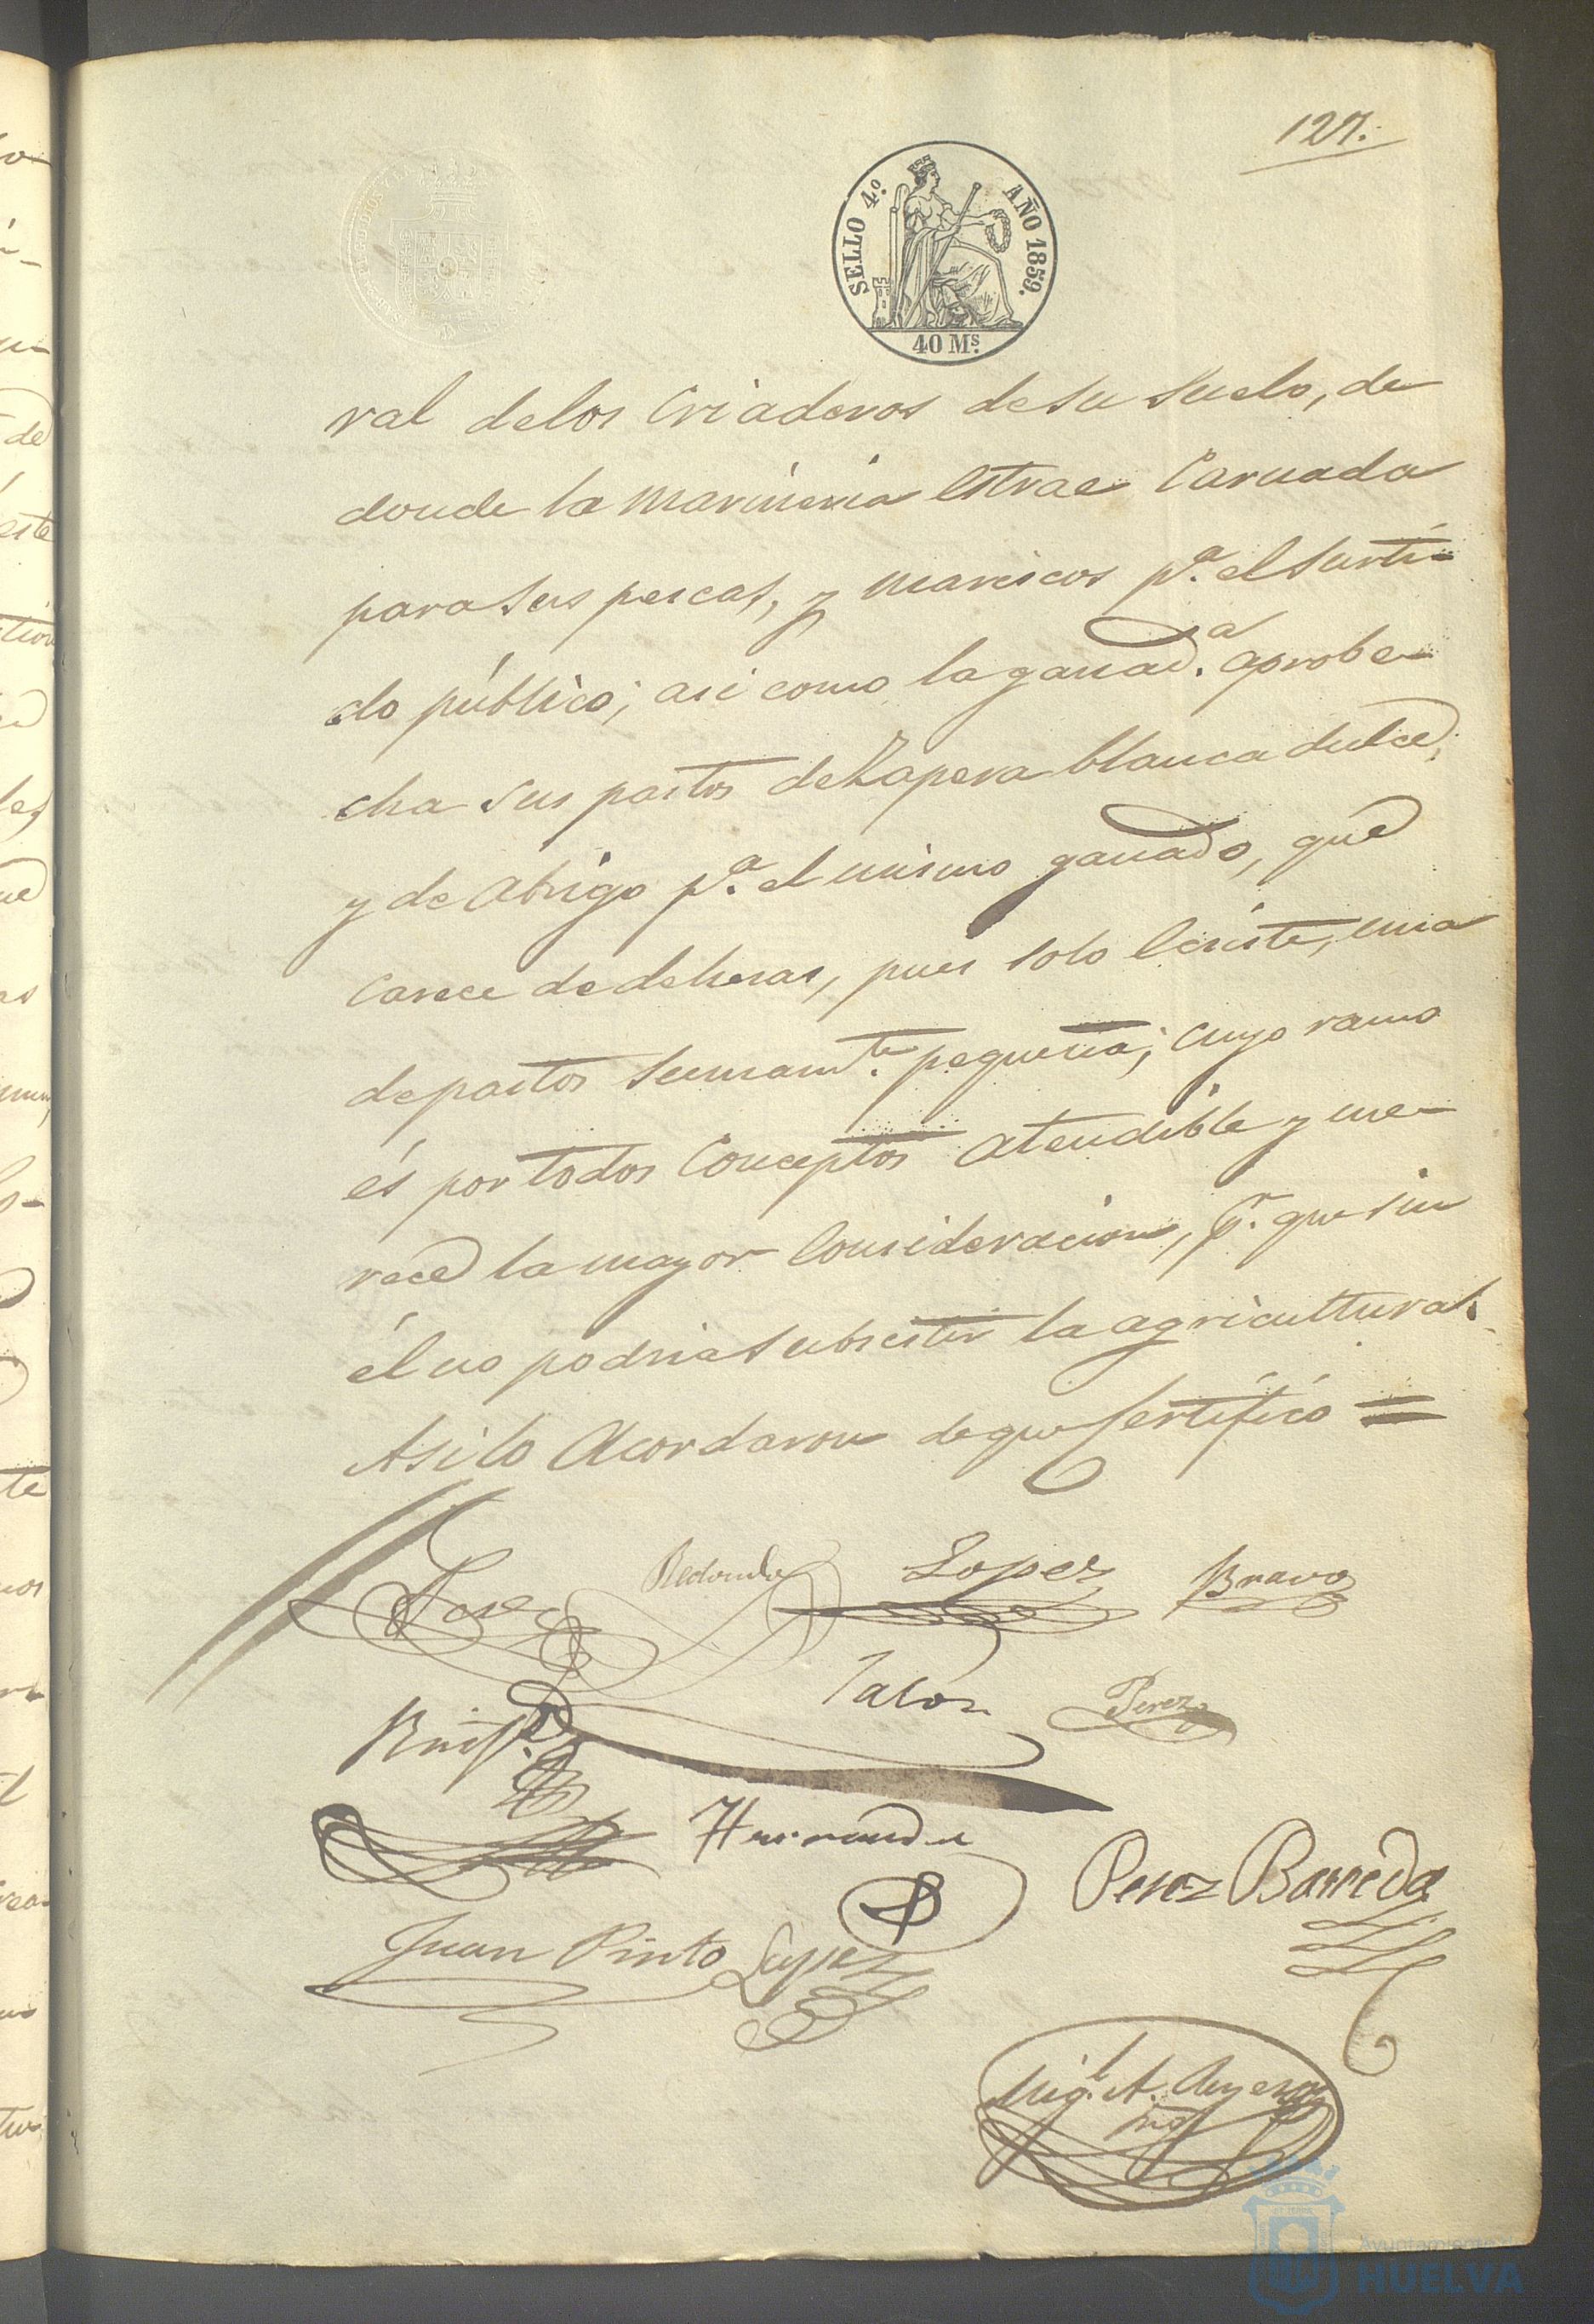 127.
SELLO 4.º AÑO 1859.
40 Ms.
ral delos Criaderos desu suelo, de
donde la marineria estrae Carnada
para sus pescas, y mariscos p.ª el surti-
do público; asi como la ganad.ª aprobe-
cha sus pastos de Zapera blanca dulce,
y de abrigo p.ª el mismo ganado, que
Carece de dehesas, pues solo Ecsiste, una
de pastos sumam.te pequeña; cuyo ramo
és por todos Conceptos atendible y me-
rece la mayor Consideracion, p.r que sin
él no podria subsistir la agricultura.
Asi lo Acordaron de que Certífico =
Redondo Lopez Bravo
Perez
Hernandez
Perez Barreda
Juan Pinto Lopez
Mig.l A.
Ayuntamiento
HUELVA